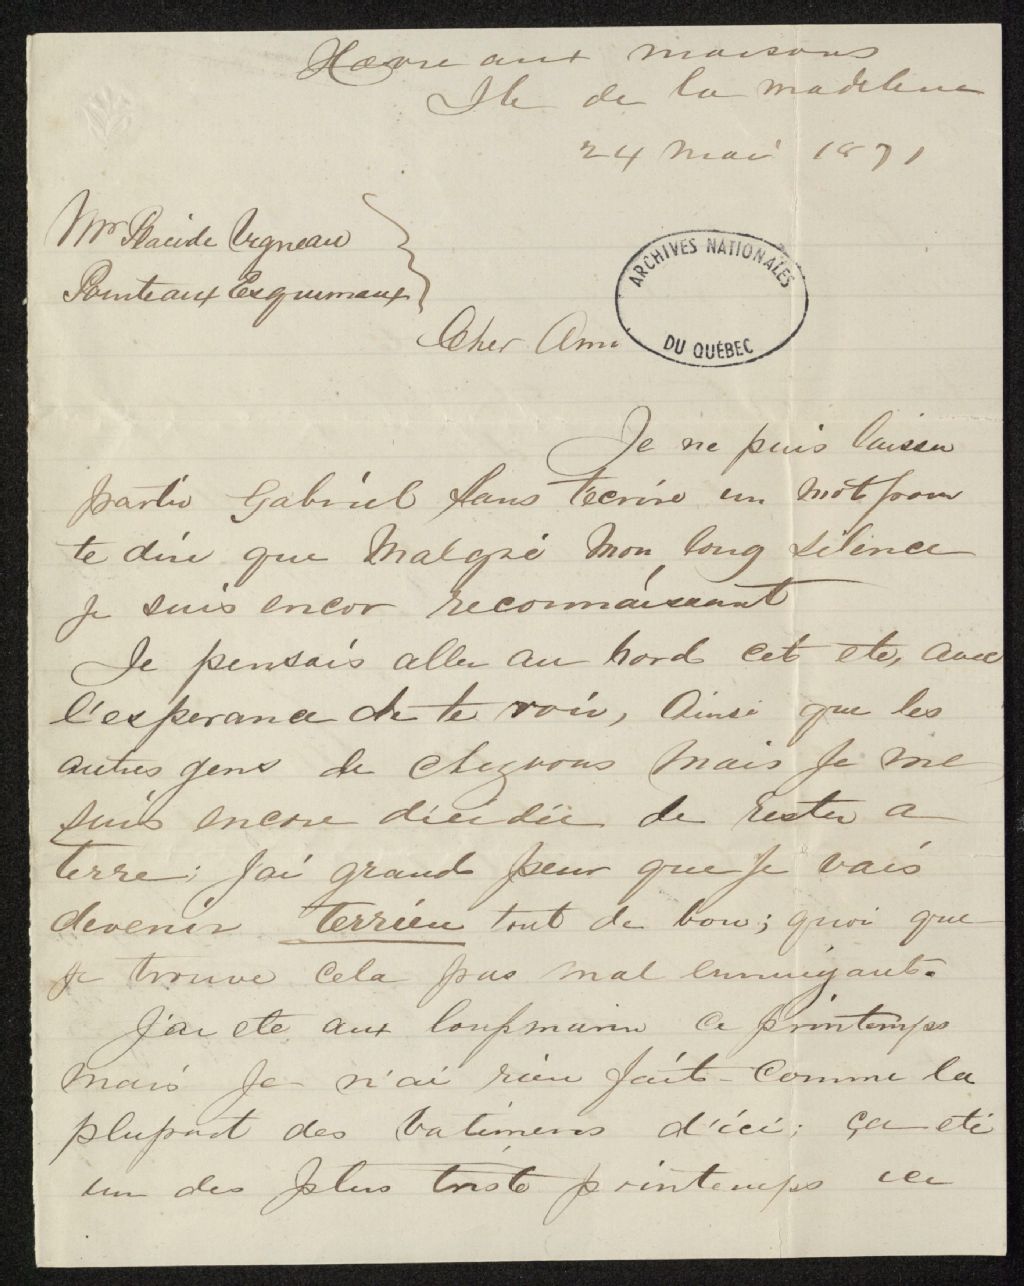 Havre aux maisons
Ile de la Madeleine
24 mai 1871
Mr Placide Vigneau
Pointe aux Esquimaux
ARCHIVES NATIONALES
DU QUÉBEC
Cher Ami
Je ne puis laisser
partir Gabriel sans t'ecrire un mot pour
te dire que Malgré Mon long silence
je suis encor reconnaissant
Je pensais aller au Nord cet ete, avec
l'esperance de te voir, Ainsi que les
autres gens de chezvous Mais Je me
suis encore décidée de rester a
terre; J'ai grand peur que Je vais
devenir terrien tout de bon; quoi que
je trouve cela pas mal ennuyant.
J'ai ete aux loupmarin ce printemps
mais Je n'ai rien fait - comme la
plupart des batimens d'ici; ça eté
un des plus triste printemps ici